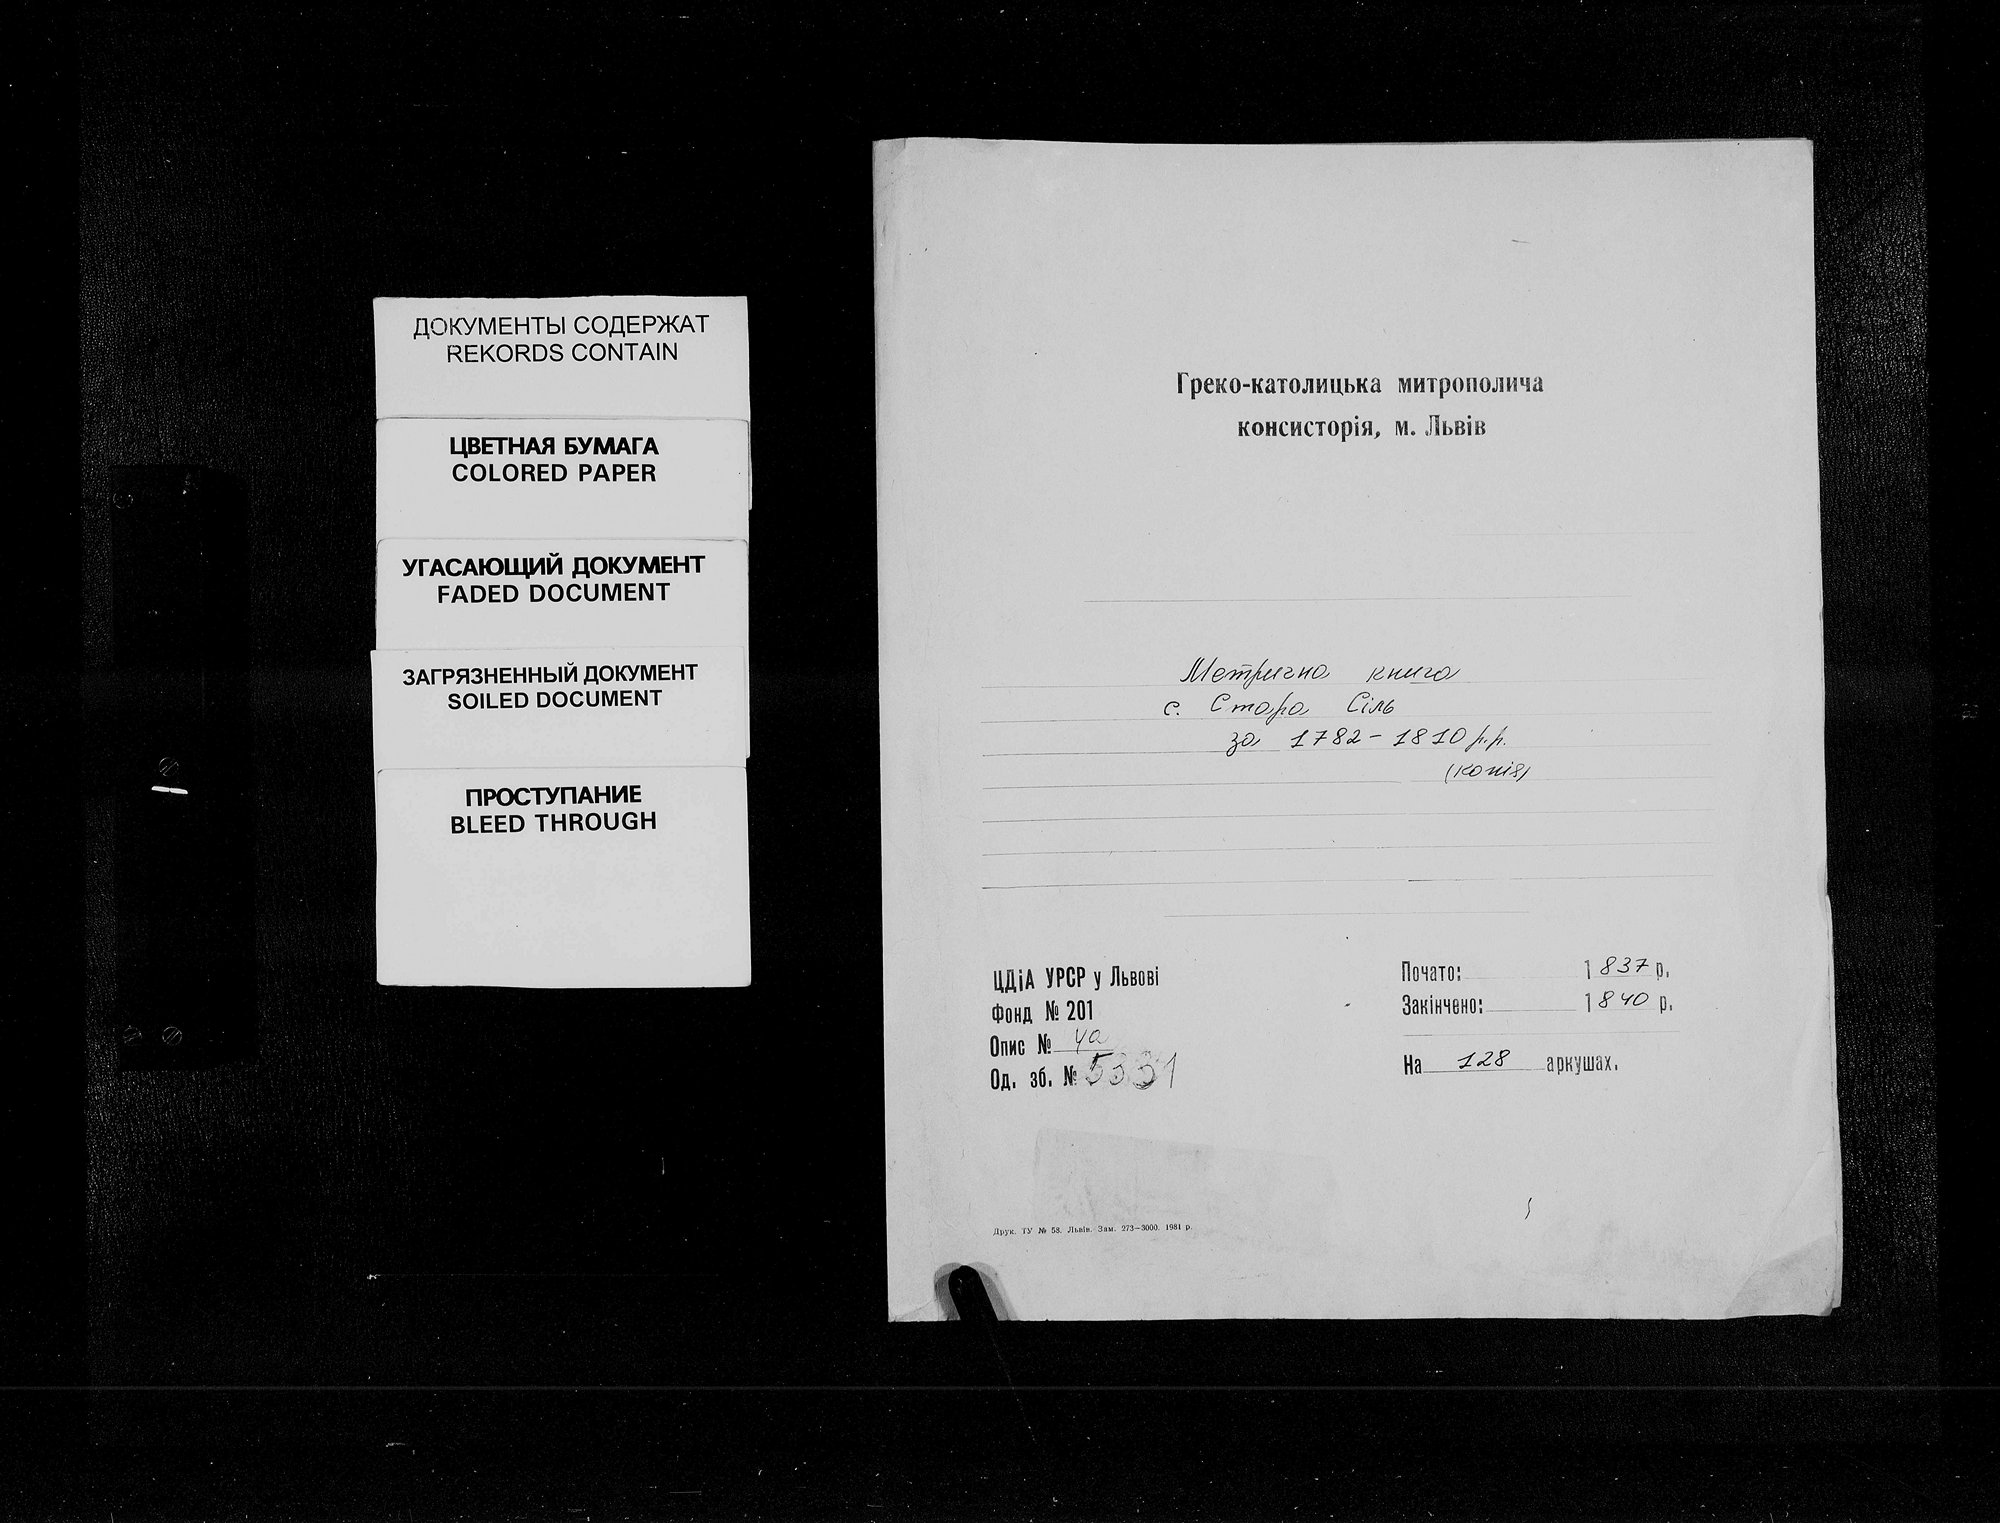 ДОКУМЕНТЫ СОДЕРЖАТ
REKORDS CONTAIN
ЦВЕТНАЯ БУМАГА
COLORED PAPER
УГАСАЮЩИЙ ДОКУМЕНТ
FADED DOCUMENT
ЗАГРЯЗНЕННЫЙ ДОКУМЕНТ
SOILED DOCUMENT
ПРОСТУПАНИЕ
BLEED THROUGH
Греко-католицька митрополича
консисторія, м. Львів
Метрична книга
с. Стара Сіль
за 1782-1810 р.р.
(копія)
ЦДіА УРСР у Львові
Фонд № 201
Опис № 4а
Од. зб. № 5331
Почато: 1837 р.
Закінчено: 1840 р.
На 128 аркушах.
Друк. ТУ № 58. Львів. Зам. 273—3000. 1981 р.